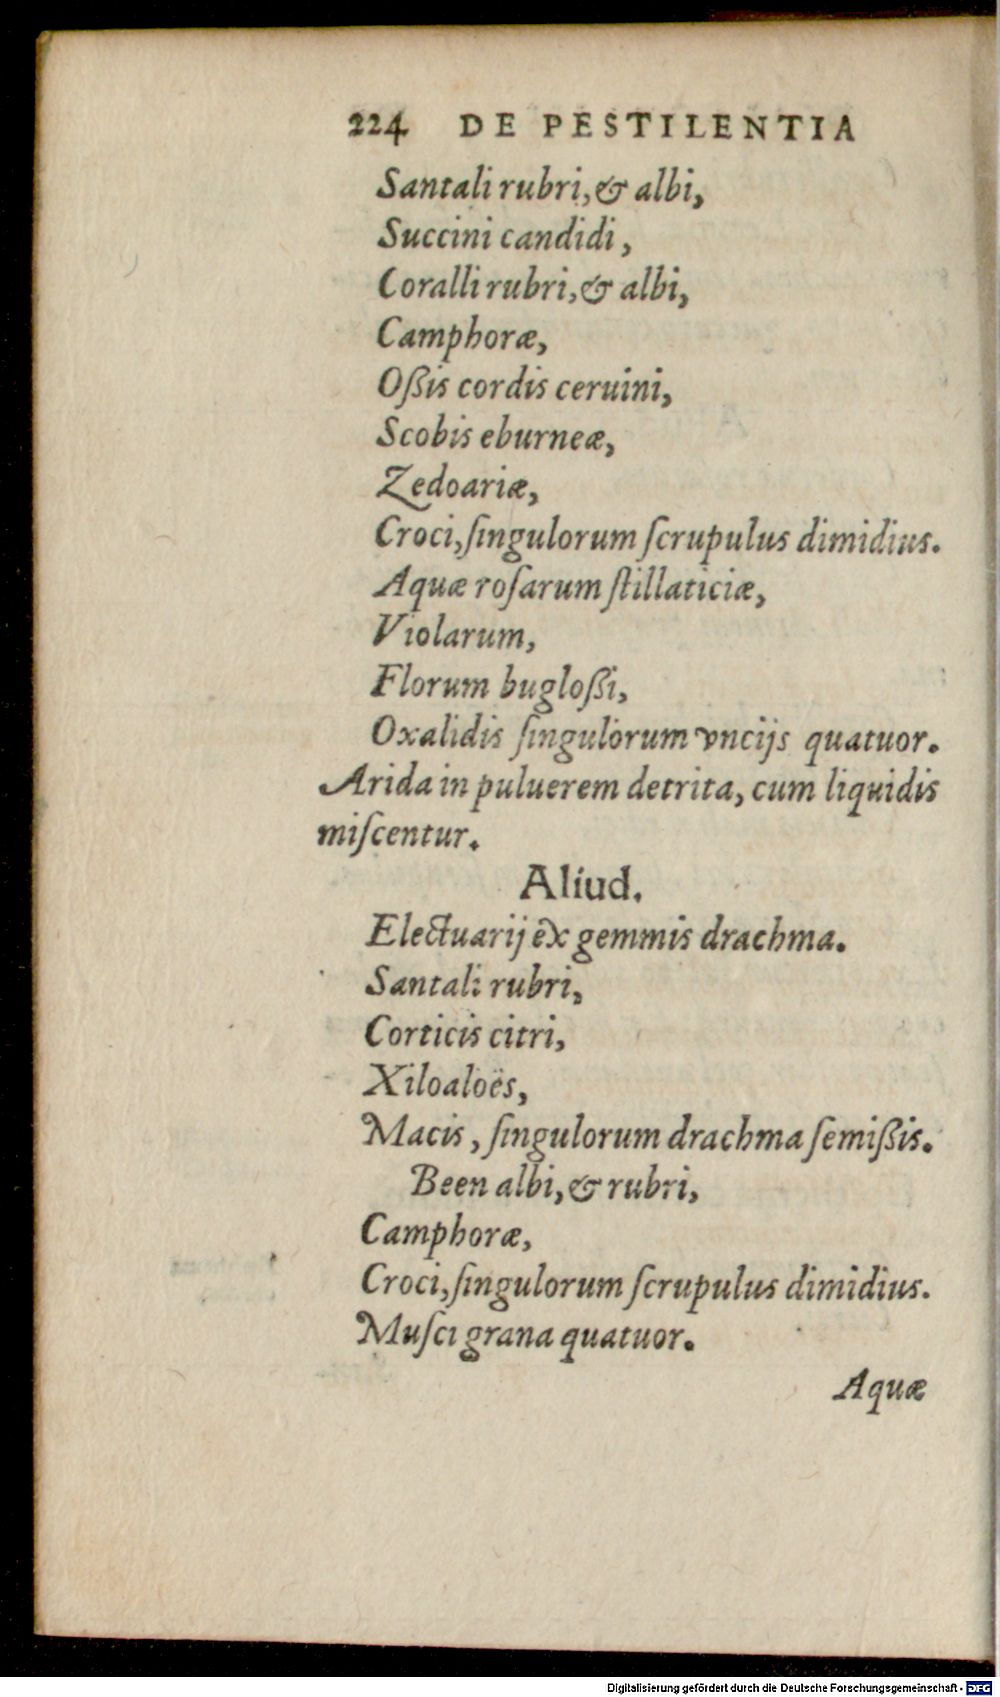 224 DE PESTILENTIA
Santali rubri, & albi,
Succini candidi,
Coralli rubri, & albi,
Camphoræ,
Oßis cordis ceruini,
Scobis eburneæ,
Zedoariæ,
Croci, ſingulorum ſcrupulus dimidius.
Aquæ roſarum ſtillaticiæ,
Violarum,
Florum bugloßi,
Oxalidis ſingulorum vncijs quatuor.
Arida in puluerem detrita, cum liquidis
miſcentur.
Aliud.
Electuarij ex gemmis drachma.
Santali rubri,
Corticis citri,
Xiloaloës,
Macis, ſingulorum drachma ſemißis.
Been albi, & rubri,
Camphoræ,
Croci, ſingulorum ſcrupulus dimidius.
Muſci grana quatuor.
Aquæ
Digitalisierung gefördert durch die Deutsche Forschungsgemeinschaft - DFG